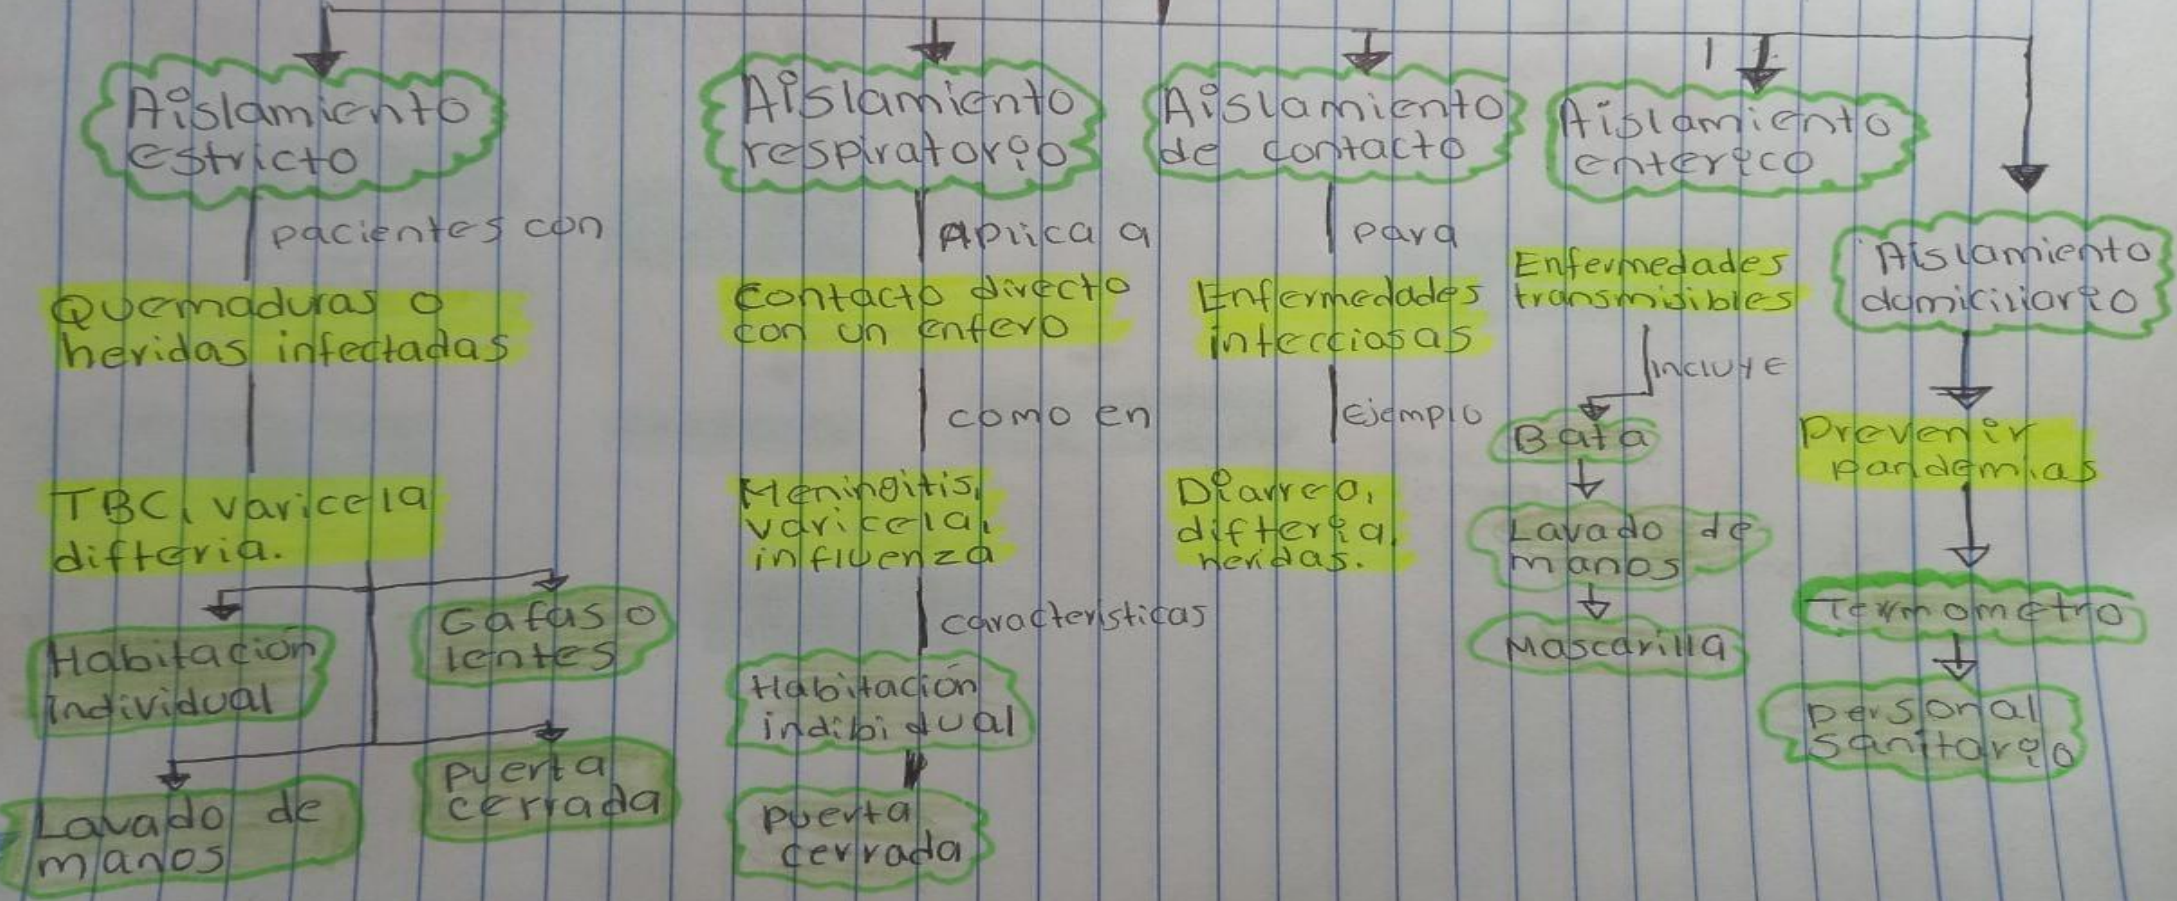 Aislamiento
estricto
pacientes con
Quemaduras o
heridas infectadas
TBC, varicela
difteria.
Habitación
individual
Gafas o
lentes
Lavado de
manos
puerta
cerrada
Aislamiento
respiratorio
Aplica a
contacto directo
con un enfero
como en
Meningitis,
varicela,
influenza
características
Habitación
indibidual
puerta
cerrada
Aislamiento
de contacto
para
Enfermedades
infecciosas
Ejemplo
Diarrea,
difteria,
heridas.
Aislamiento
enterico
Enfermedades
transmisibles
incluye
Bata
Lavado de
manos
Mascarilla
Aislamiento
domiciliario
Prevenir
pandemias
Termometro
personal
sanitario